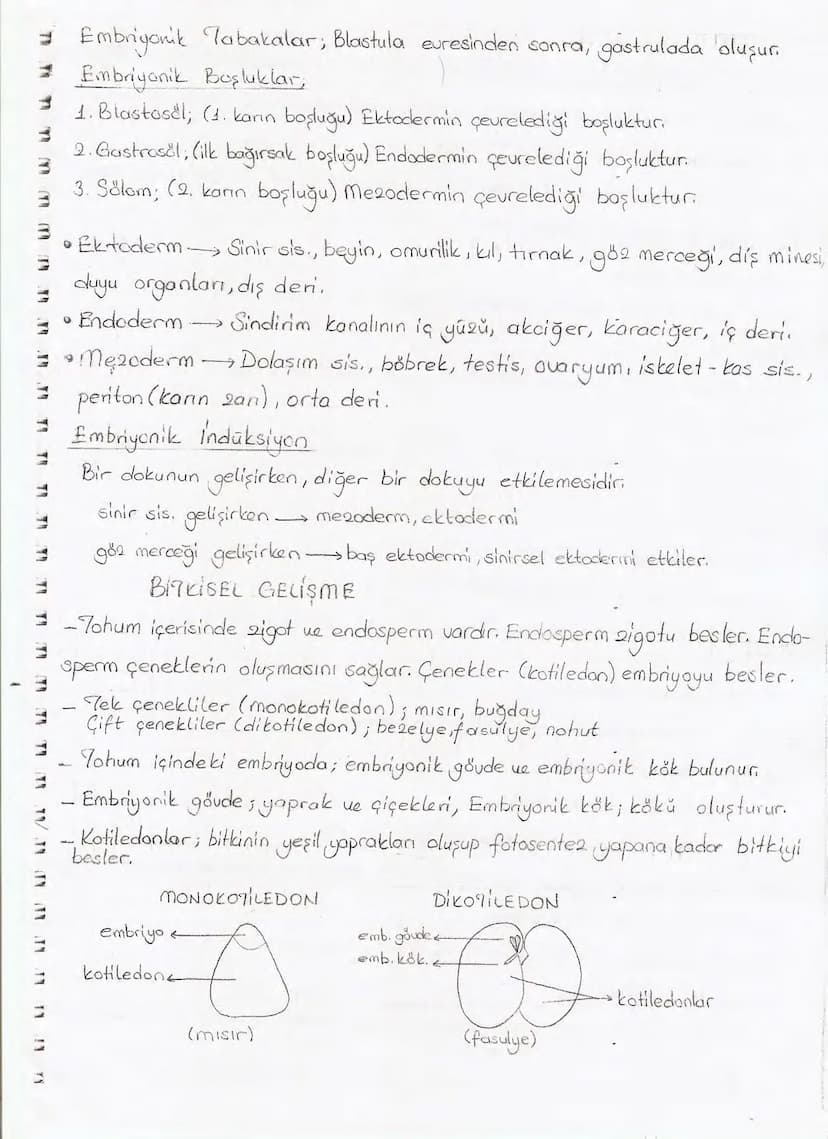 Embriyonik Tabakalar; Blastula evresinden sonra, gastrulada oluşur.
Embriyonik Boşluklar;
1. Blastosöl; (1. karın boşluğu) Ektodermin çevrelediği boşluktur.
2. Gastrosöl; (ilk bağırsak boşluğu) Endodermin çevrelediği boşluktur.
3. Sölom; (2. karın boşluğu) Mezodermin çevrelediği boşluktur.
• Ektoderm → Sinir sis., beyin, omurilik, kıl, tırnak, göz merceği, diş minesi,
duyu organları, dış deri.
• Endoderm → Sindirim kanalının iç yüzü, akciğer, karaciğer, iç deri.
• Mezoderm → Dolaşım sis., böbrek, testis, ovaryum, iskelet - kas sis.,
periton (karın zarı), orta deri.
Embriyonik İndüksiyon
Bir dokunun gelişirken, diğer bir dokuyu etkilemesidir.
sinir sis. gelişirken → mezoderm, ektodermi
göz merceği gelişirken → baş ektodermi, sinirsel ektodermi etkiler.
BİTKİSEL GELİŞME
- Tohum içerisinde zigot ve endosperm vardır. Endosperm zigotu besler. Endo-
sperm çeneklerin oluşmasını sağlar. Çenekler (kotiledon) embriyoyu besler.
- Tek çenekliler (monokotiledon); mısır, buğday
Çift çenekliler (dikotiledon); bezelye, fasulye, nohut
- Tohum içindeki embriyoda; embriyonik gövde ve embriyonik kök bulunur.
- Embriyonik gövde; yaprak ve çiçekleri, Embriyonik kök; kökü oluşturur.
- Kotiledonlar; bitkinin yeşil yaprakları oluşup fotosentez yapana kadar bitkiyi
besler.
MONOKOTİLEDON
embriyo
kotiledon
(mısır)
DİKOTİLEDON
emb. gövde
emb. kök.
kotiledonlar
(fasulye)